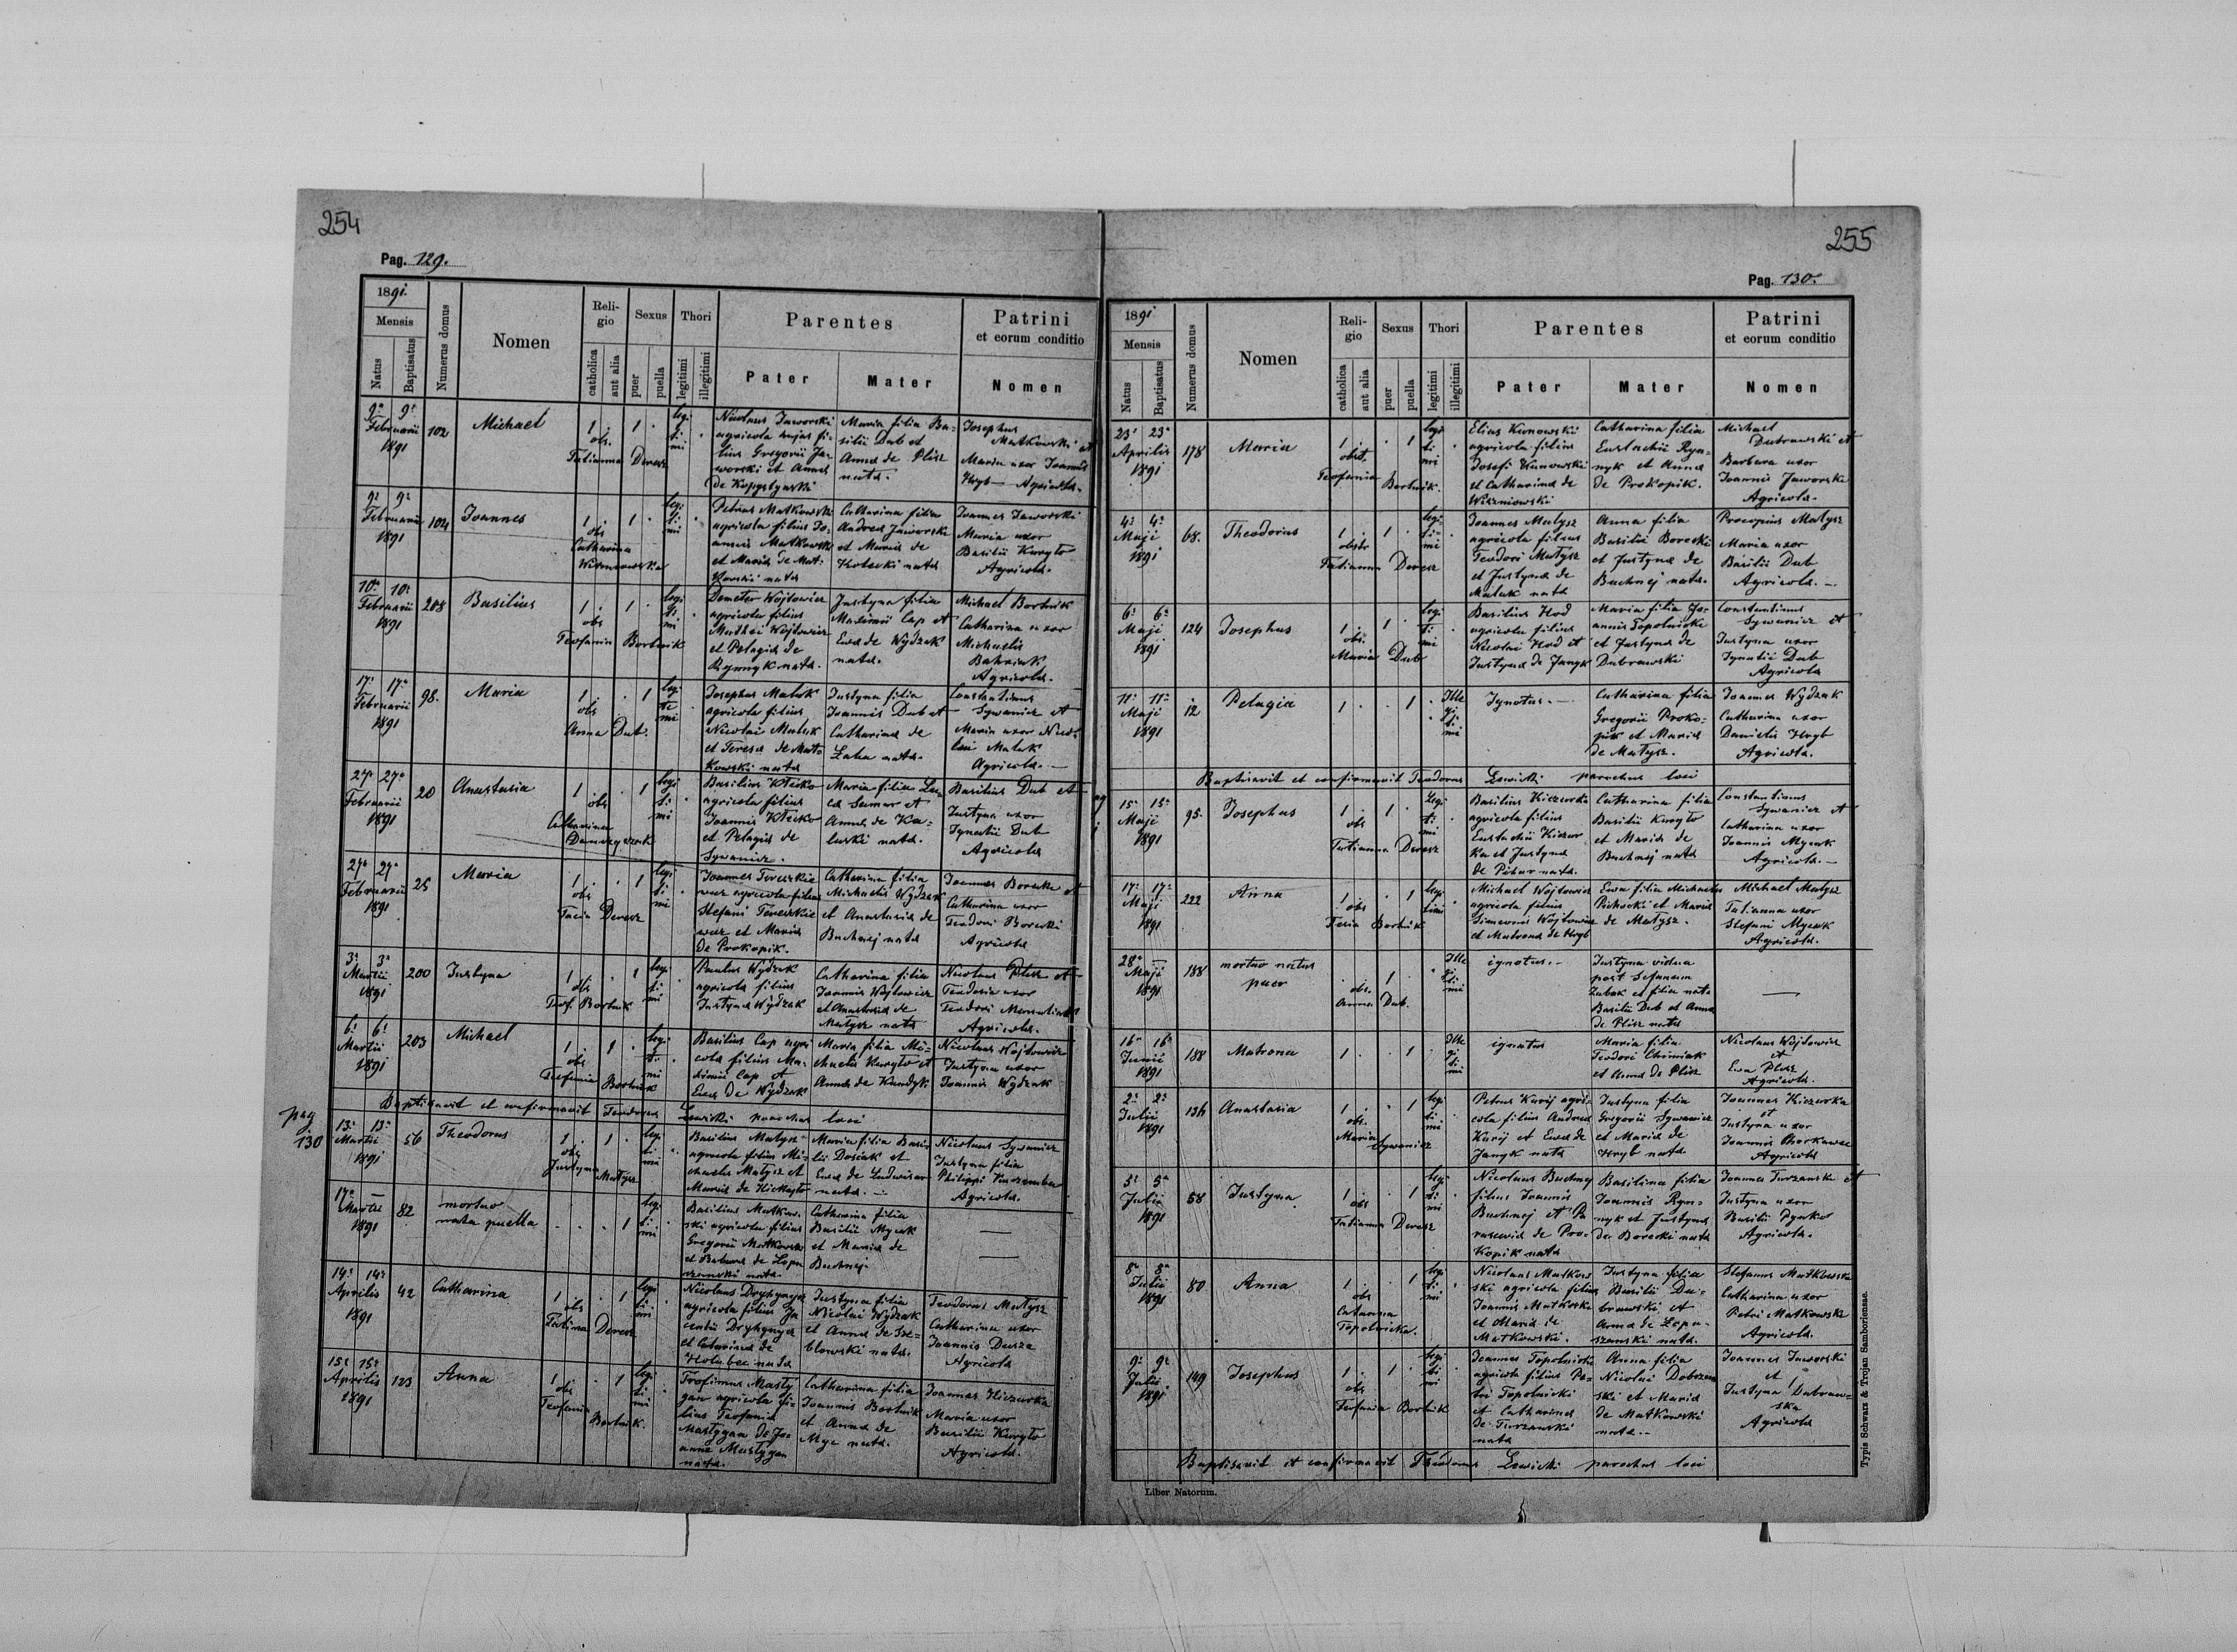 254
Pag. 129.
1891.
Mensis
Natus
Baptisatus
Numerus domus
Nomen
Reli-
gio
catholica
aut alia
Sexus
puer
puella
Thori
legitimi
illegitimi
Parentes
Pater
Mater
Patrini
et eorum conditio
Nomen
9a 9a
Februarii
1891
102
Michael
1 . 1 .
obs.
Tatianna Deresz
legi
ti
mi
Nicolaus Jaworski
agricola hujas fi-
lius Gregorii Ja-
worski et Anna
de Kopystynski
Maria filia Ba-
silii Dub et
Anna de Plisz
nata.
Josephus
Matkowski et
Maria uxor Joannis
Hryb Agricola.
9a 9a
Februarii
1891
104
Joannes
1 . 1 .
obs
Catharina
Wiszniowska
legi
ti
mi
Petrus Matkowski
agricola filius Jo-
annis Matkowski
et Maria de Mat-
kowski nata
Catharina filia
Andrea Jaworski
et Maria de
nata
Joannes Jaworski
Maria uxor
Basilii Kuryto
Agricola.
10a 10a
Februarii
1891
208
Basilius
1 . 1 .
obs
Teofania Bortnik
legi
ti
mi
Demeter Wojtowicz
agricola filius
Mathei Wojtowicz
et Pelagia de
Rymnyk nata.
Justyna filia
Maximii Cap et
Ewa de Wydzak
nata.
Michael Bortnik
Catharina uxor
Michaelis
Agricola.
17a 17a
Februarii
1891
98.
Maria
1 . . 1
obs
Anna Dub.
legi
ti
mi
Josephus Maluk
agricola filius
Nicolai Maluk
et Teresa de Mat-
kowski nata
Justyna filia
Joannis Dub et
Catharina de
nata.
Constantinus
Sywanicz et
Maria uxor Nico-
lai Maluk
Agricola.
27a 27a
Februarii
1891
20
Anastasia
1 . . 1
obs
Catharina
legi
ti
mi
Basilius Klecko
agricola filius
Joannis Klecko
et Pelagia de
Sywanicz.
Maria filia Lu-
ca et
Anna de Ka-
luski nata.
Basilius Dub et
Justyna uxor
Ignatii Dub
Agricola
27a 27a
Februarii
1891
25
Maria
1 . . 1
obs
Deresz
legi
ti
mi
Joannes Tereszkie
wicz agricola filius
Stefani Tereszkie
wicz et Maria
de Prokopik.
Catharina filia
Michaelis Wydzak
et Anastasia de
Buchnej nata
Joannes Borecki et
Catharina uxor
Teodori Borecki
Agricola
3a 3a
Martii
1891
200
Justyna
1 . . 1
obs
Teof. Bortnik
legi
ti
mi
Paulus Wydzak
agricola filius
Justyna Wydzak
Catharina filia
Joannis Wojtowicz
et Anastasia de
Matysz nata
Nicolaus Plisz et
Teodosia uxor
Teodori
Agricola.
6a 6a
Martii
1891
203
Michael
1 . 1 .
obs
Teofania Bortnik
legi
ti
mi
Basilius Cap agri
cola filius Ma-
ximii Cap et
Ewa de Wydzak
Maria filia Mi-
chaelis Kuryto et
Anna de Kundyk
Nicolaus Wojtowicz
Justyna uxor
Joannis Wydzak
Baptisavit et confirmavit Teodorus Lewicki parochus loci
pag
130
13a 13a
Martii
1891
56
Theodorus
1 . 1 .
obs
Justyna
Matysz
legi
ti
mi
Basilius Matysz
agricola filius Mi-
chaelis Matysz et
Maria de
Maria filia Basi-
lii Dosiak et
Ewa de
nata.
Nicolaus Sywanicz
Justyna filia
Philippi
Agricola.
17a —
Martii
1891
82
mortuo
nata puella
. . . 1
legi
ti
mi
Basilius Matkow-
ski agricola filius
Gregorii Matkowski
et Barbara de Lopu
szanski nata.
Catharina filia
Basilii Mycak
et Maria de
Buchnej.
—
—
14a 14a
Aprilis
1891
42
Catharina
1 . . 1
obs
Tatina Deresz
legi
ti
mi
Nicolaus Dryhynycz
agricola filius Ja
centii Dryhynycz
et Catarina de
Holubec nata
Justyna filia
Nicolai Wydzak
et Anna de Sze-
blowski nata.
Teodorus Matysz
Catharina uxor
Joannis Dusza
Agricola
15a 15a
Aprilis
1891
123
Anna
1 . . 1
obs
Teofania
Bortnik.
legi
ti
mi
Trofimus Masty
gan agricola fi-
lius Teofania
Mastygan de Jo-
anne Mastygan
nata.
Catharina filia
Joannis Bortnik
et Anna de
Myc nata.
Joannes Kiczurka
Maria uxor
Basilii Kuryto
Agricola.
255
Pag. 130.
1891
Mensis
Natus
Baptisatus
Numerus domus
Nomen
Reli-
gio
catholica
aut alia
Sexus
puer
puella
Thori
legitimi
illegitimi
Parentes
Pater
Mater
Patrini
et eorum conditio
Nomen
23a 23a
Aprilis
1891
178
Maria
1 . . 1
obst.
Teofania Bortnik.
legi
ti
mi
Elias Kunowski
agricola filius
Josefi Kunowski
et Catharina de
Wiszniowski
Catharina filia
Eustachii Rym-
nyk et Anna
de Prokopik.
Michael
Dubrawski et
Barbara uxor
Joannis Jaworski
Agricola.
4a 4a
Maji
1891
68.
Theodorus
1 . 1 .
obstr
Tatianna Deresz
legi
ti-
mi
Joannes Matysz
agricola filius
Teodori Matysz
et Justyna de
Maluk nata
Anna filia
Basilii Borecki
et Justyna de
Buchnej nata.
Procopius Matysz
Maria uxor
Basilii Dub
Agricola. —
6a 6a
Maji
1891
124
Josephus
1 . 1 .
obs.
Maria Dub
legi
ti
mi
Basilius Hod
agricola filius
Nicolai Hod et
Justyna de Janyk
Maria filia Jo-
annis Topolnicki
et Justyna de
Dubrawski
Constantinus
Sywanicz et
Justyna uxor
Ignatii Dub
Agricola
11a 11a
Maji
1891
12
Pelagia
1 . . 1
Ille
gi
ti
mi
Ignotus. —
Catharina filia
Gregorii Proko-
pik et Maria
de Matysz.
Joannes Wydzak
Catharina uxor
Danielis Hryb
Agricola.
Baptisavit et confirmavit Teodorus Lewicki parochus loci
15a 15a
Maji
1891
95.
Josephus
1 . 1 .
obs
Tatianna Deresz
Legi
ti
mi
Basilius Kiczurka
agricola filius
Eustachii Kiczur
ka et Justyna
de nata.
Catharina filia
Basilii Kuryto
et Maria de
Buchnej nata
Constantinus
Sywanicz et
Catharina uxor
Joannis Mycak
Agricola. —
17a 17a
Maji
1891
222
Anna
1 . . 1
obs
Bortnik
legi
timi
Michael Wojtowicz
agricola filius
Simeonis Wojtowicz
et Matrona de Hryb
Ewa filia Michaelis
et Maria
de Matysz.
Michael Matysz
Tatianna uxor
Stefani Mycak
Agricola.
28a —
Maji
1891
188
mortuo natus
puer
. 1
obs.
Anna Dub.
Ille
gi
ti
mi
ignotus. —
Justyna vidua
post Stefanum
Zubak et filia nata
Basilii Dub et Anna
de Plisz nata
—
16a 16a
Junii
1891
188
Matrona
1 . . 1
Ille
gi
ti
mi
ignotus
Maria filia
Teodori Chimiak
et Anna de Plisz
Nicolaus Wojtowicz
et
Ewa Plisz
Agricola.
2a 2a
Julii
1891
136
Anastasia
1 . . 1
obs.
Maria
Sywanicz
legi
ti
mi
Petrus Kurij agri-
cola filius Andrea
Kurij et Ewa de
Janyk nata
Justyna filia
Gregorii Sywanicz
et Maria de
Hryb nata
Joannes Kiczurka
et
Justyna uxor
Joannis
Agricola
5a 5a
Julii
1891
58
Justyna
1 . . 1
obs
Tatianna Deresz
legi
ti
mi
Nicolaus Buchnej
filius Joannis
Buchnej et Pa
rascewia de Pro-
kopik nata
Basilina filia
Joannis Rym-
nyk et Justyna
de Borecki nata
Joannes Turzanski et
Justyna uxor
Basilii Pynko
Agricola.
8a 8a
Julii
1891
80
Anna
1 . . 1
obs
Catarina
Topolnicka.
legi
ti
mi
Nicolaus Matkow
ski agricola filius
Joannis Matkowski
et Maria de
Matkowski.
Justyna filia
Basilii Du-
brawski et
Anna de Lopu-
szanski nata.
Stefanus Matkowski
Catharina uxor
Petri Matkowski
Agricola.
9a 9a
Julii
1891
149
Josephus
1 . 1 .
obs
Teofania Bortnik
legi
ti
mi
Joannes Topolnicki
agricola filius Pe-
tri Topolnicki
et Catharina
de Turzanski
nata
Anna filia
Nicolai Dobrzan
ski et Maria
de Matkowski
nata. —
Joannes Jaworski
et
Justyna Dubraw-
ska
Agricola
Baptisavit et confirmavit Theodorus Lewicki parochus loci
Liber Natorum.
Typis Schwarz & Trojan Samboriensae.